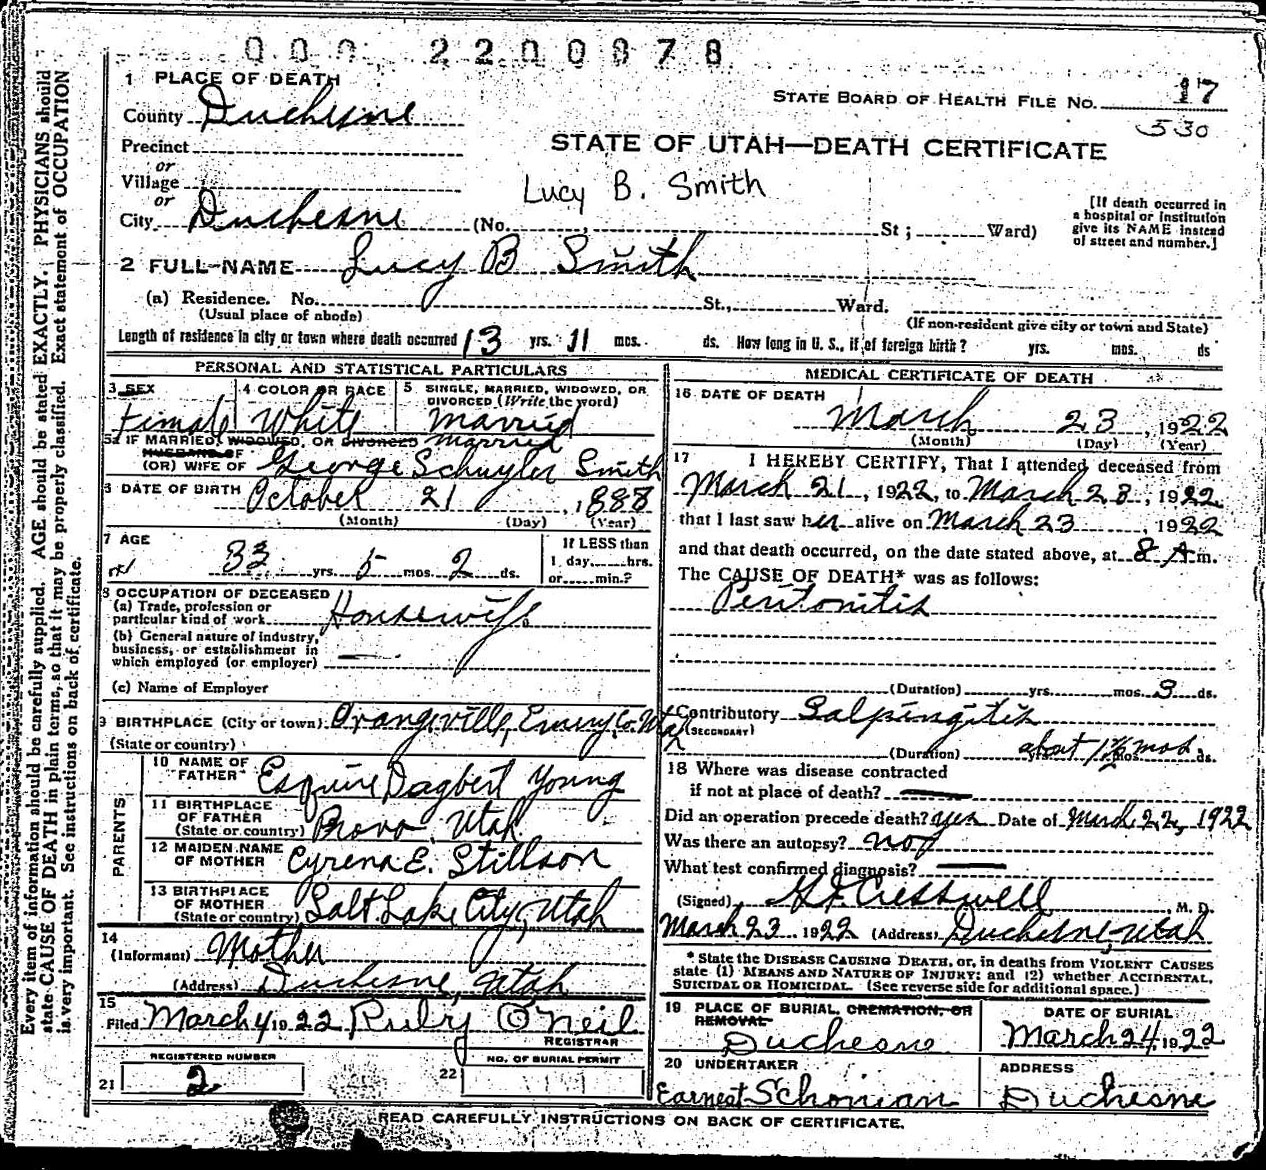 000 2200878
1 PLACE OF DEATH
STATE BOARD OF HEALTH FILE NO. 17
530
County Duchesne
Precinct
or
Village
or
City Duchesne (No. St; Ward)
STATE OF UTAH—DEATH CERTIFICATE
Lucy B. Smith
[If death occurred in
a hospital or institution
give its NAME instead
of street and number.]
2 FULL-NAME Lucy B Smith
(a) Residence. No. St., Ward.
(Usual place of abode) (If non-resident give city or town and State)
Length of residence in city or town where death occurred 13 yrs. 11 mos. ds. How long in U. S., if of foreign birth? yrs. mos. ds
PERSONAL AND STATISTICAL PARTICULARS
3 SEX
Female
4 COLOR OR RACE
White
5 SINGLE, MARRIED, WIDOWED, OR
DIVORCED (Write the word)
Married
5a IF MARRIED, WIDOWED, OR DIVORCED Married
HUSBAND OF
(OR) WIFE OF George Schuyler Smith
6 DATE OF BIRTH October 21, 1888
(Month) (Day) (Year)
7 AGE
33 yrs. 5 mos. 2 ds.
If LESS than
1 day hrs.
or min.?
8 OCCUPATION OF DECEASED
(a) Trade, profession or
particular kind of work Housewife
(b) General nature of industry,
business, or establishment in
which employed (or employer) —
(c) Name of Employer
9 BIRTHPLACE (City or town) Orangeville, Emery Co. Utah
(State or country)
PARENTS
10 NAME OF
FATHER Esquire Dagbert Young
11 BIRTHPLACE
OF FATHER
(State or country) Provo, Utah
12 MAIDEN NAME
OF MOTHER Cyrena E. Stillson
13 BIRTHPLACE
OF MOTHER
(State or country) Salt Lake City, Utah
14
(Informant) Mother
(Address) Duchesne, Utah
15
Filed March 4 1922 Ruby O'Neil
REGISTRAR
REGISTERED NUMBER
21 2
NO. OF BURIAL PERMIT
22
MEDICAL CERTIFICATE OF DEATH
16 DATE OF DEATH
March 23, 1922
(Month) (Day) (Year)
17 I HEREBY CERTIFY, That I attended deceased from
March 21, 1922, to March 23, 1922
that I last saw her alive on March 23 1922
and that death occurred, on the date stated above, at 8 A m.
The CAUSE OF DEATH* was as follows:
Peritonitis
(Duration) yrs. mos. 3 ds.
Contributory Salpingitis
(SECONDARY)
(Duration) about 1½ mos ds.
18 Where was disease contracted
if not at place of death? —
Did an operation precede death? yes Date of March 22, 1922
Was there an autopsy? no
What test confirmed diagnosis? —
(Signed) Cresswell M. D.
March 23 1922 (Address) Duchesne, Utah
* State the DISEASE CAUSING DEATH, or, in deaths from VIOLENT CAUSES
state (1) MEANS AND NATURE OF INJURY; and (2) whether ACCIDENTAL,
SUICIDAL OR HOMICIDAL. (See reverse side for additional space.)
19 PLACE OF BURIAL, CREMATION, OR
REMOVAL
Duchesne
DATE OF BURIAL
March 24, 1922
20 UNDERTAKER
Earnest Schonian
ADDRESS
Duchesne
READ CAREFULLY INSTRUCTIONS ON BACK OF CERTIFICATE.
Every item of information should be carefully supplied. AGE should be stated EXACTLY. PHYSICIANS should
state CAUSE OF DEATH in plain terms, so that it may be properly classified. Exact statement of OCCUPATION
is very important. See instructions on back of certificate.